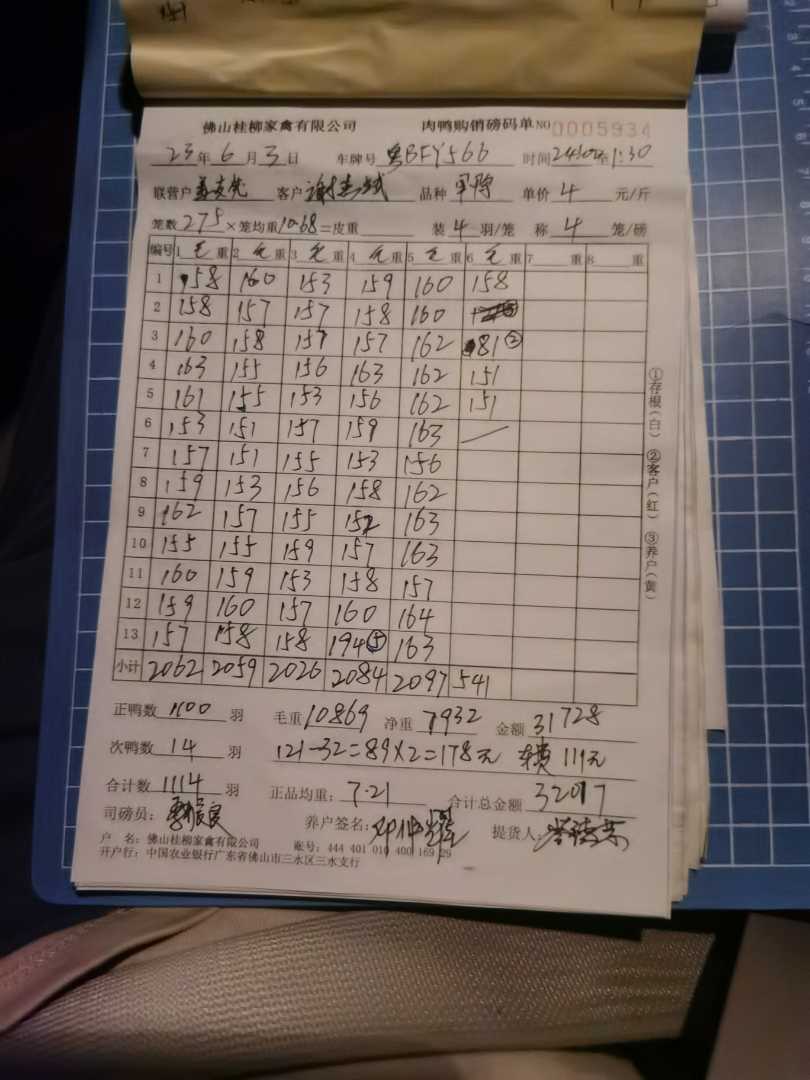 佛山桂柳家禽有限公司 肉鸭购销磅码单 NO 0005934
23年6月3日 车牌号 粤BFY566 时间 至1:30
联营户 客户 品种 单价 4 元/斤
笼数 275 ×笼均重 10.68 =皮重 装 4 羽/笼 称 4 笼/磅
编号 1 毛 重 2 毛 重 3 毛 重 4 毛 重 5 毛 重 6 毛 重 7 重 8 重
1 158 160 153 159 160 158
2 158 157 157 158 160
3 160 158 157 157 162 81②
4 163 155 156 163 162 151
5 161 155 153 156 162 151
6 153 151 157 159 163
7 157 151 155 153 156
8 159 153 156 158 162
9 162 157 155 152 163
10 155 155 159 157 163
11 160 159 153 158 157
12 159 160 157 160 164
13 157 158 158 194⑤ 163
小计 2062 2059 2026 2084 2097 541
正鸭数 1100 羽 毛重 10869 净重 7932 金额 31728
次鸭数 14 羽 121-32=89×2=178元 111元
合计数 1114 羽 正品均重: 7.21 合计总金额 32017
司磅员: 养户签名: 提货人:
户 名: 佛山桂柳家禽有限公司 账号: 444 401 010 400 169 29
开户行: 中国农业银行广东省佛山市三水区三水支行
①存根(白) ②客户(红) ③养户(黄)